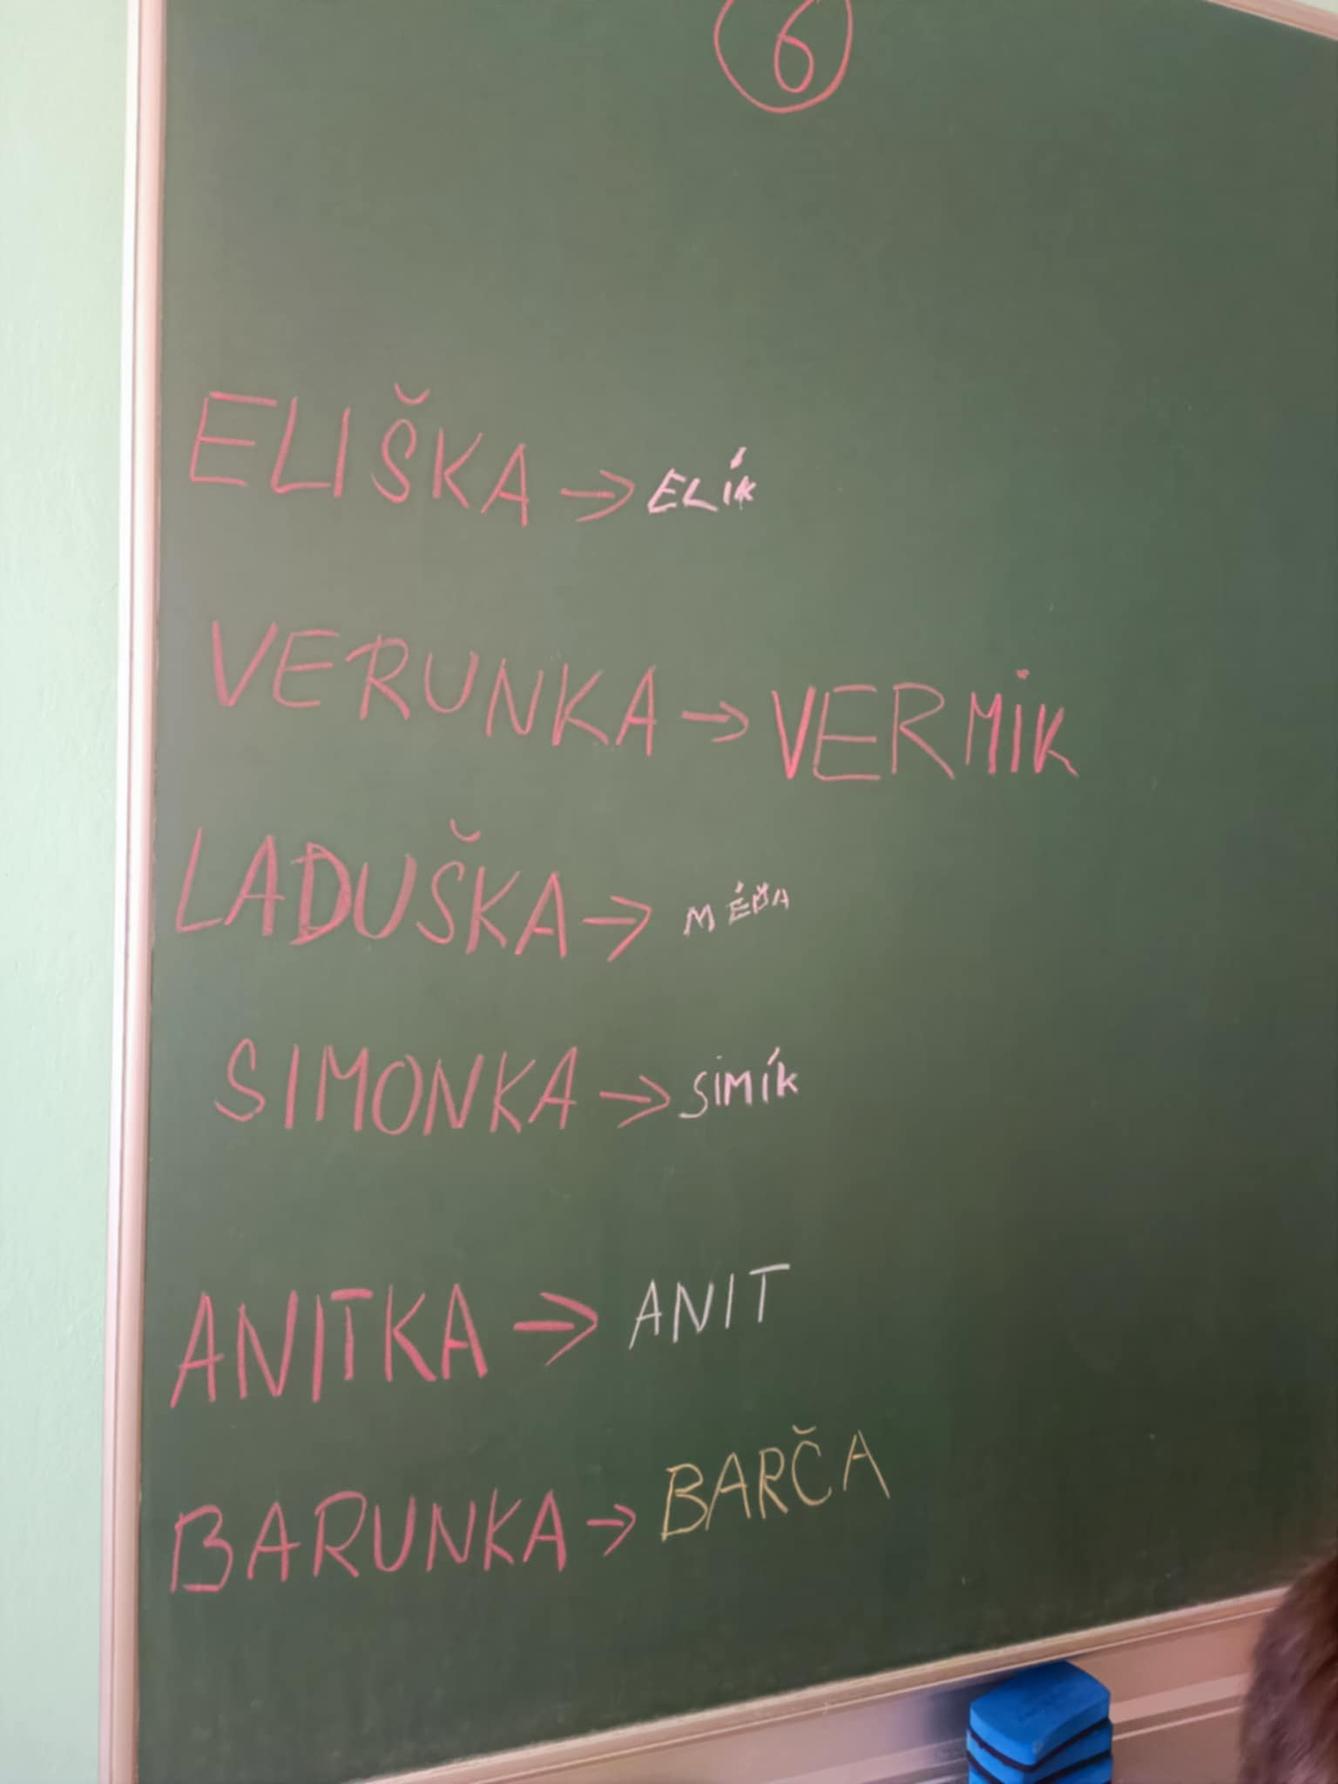 6
ELIŠKA → ELÍK
VERUNKA → VERMIK
LADUŠKA →
SIMONKA → SIMÍK
ANITKA → ANIT
BARUNKA → BARČA